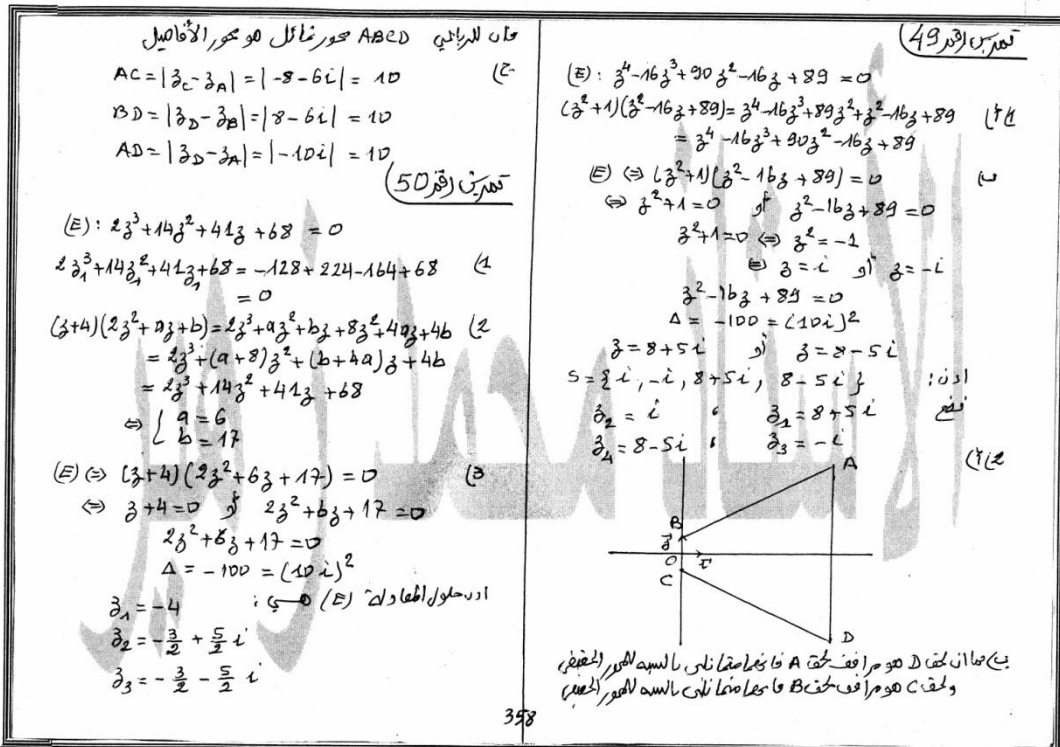 تمرين رقم 49
(E): z⁴-16z³+90z²-16z+89 = 0
1) أ) (z²+1)(z²-16z+89) = z⁴-16z³+89z²+z²-16z+89
= z⁴-16z³+90z²-16z+89
ب) (E) ⇔ (z²+1)(z²-16z+89) = 0
⇔ z²+1=0 أو z²-16z+89=0
z²+1=0 ⇔ z²=-1
⇔ z=i أو z=-i
z²-16z+89=0
Δ = -100 = (10i)²
z=8+5i أو z=8-5i
اذن: S={i, -i, 8+5i, 8-5i}
فنضع z₁=8+5i ، z₂=i
z₃=-i ، z₄=8-5i
2) أ)
A
B
j
O
i
C
D
ب) بما ان لحق D هو مرافق لحق A فانهما متماثلتين بالنسبة للمحور الحقيقي
ولحق C هو مرافق لحق B فانهما متماثلتين بالنسبة للمحور الحقيقي
فان للرباعي ABCD محور تماثل هو محور الأفاصيل
ج) AC=|z_C-z_A|=|-8-6i|=10
BD=|z_D-z_B|=|8-6i|=10
AD=|z_D-z_A|=|-10i|=10
تمرين رقم 50
(E): 2z³+14z²+41z+68 = 0
1) 2z₁³+14z₁²+41z₁+68 = -128+224-164+68
= 0
2) (z+4)(2z²+az+b)=2z³+az²+bz+8z²+4az+4b
= 2z³+(a+8)z²+(b+4a)z+4b
= 2z³+14z²+41z+68
⇔ { a=6
b=17
3) (E) ⇔ (z+4)(2z²+6z+17)=0
⇔ z+4=0 أو 2z²+6z+17=0
2z²+6z+17=0
Δ = -100 = (10i)²
اذن حلول المعادلة (E) هي:
z₁=-4
z₂=-3/2 + 5/2 i
z₃=-3/2 - 5/2 i
358
الأستاذ محمد